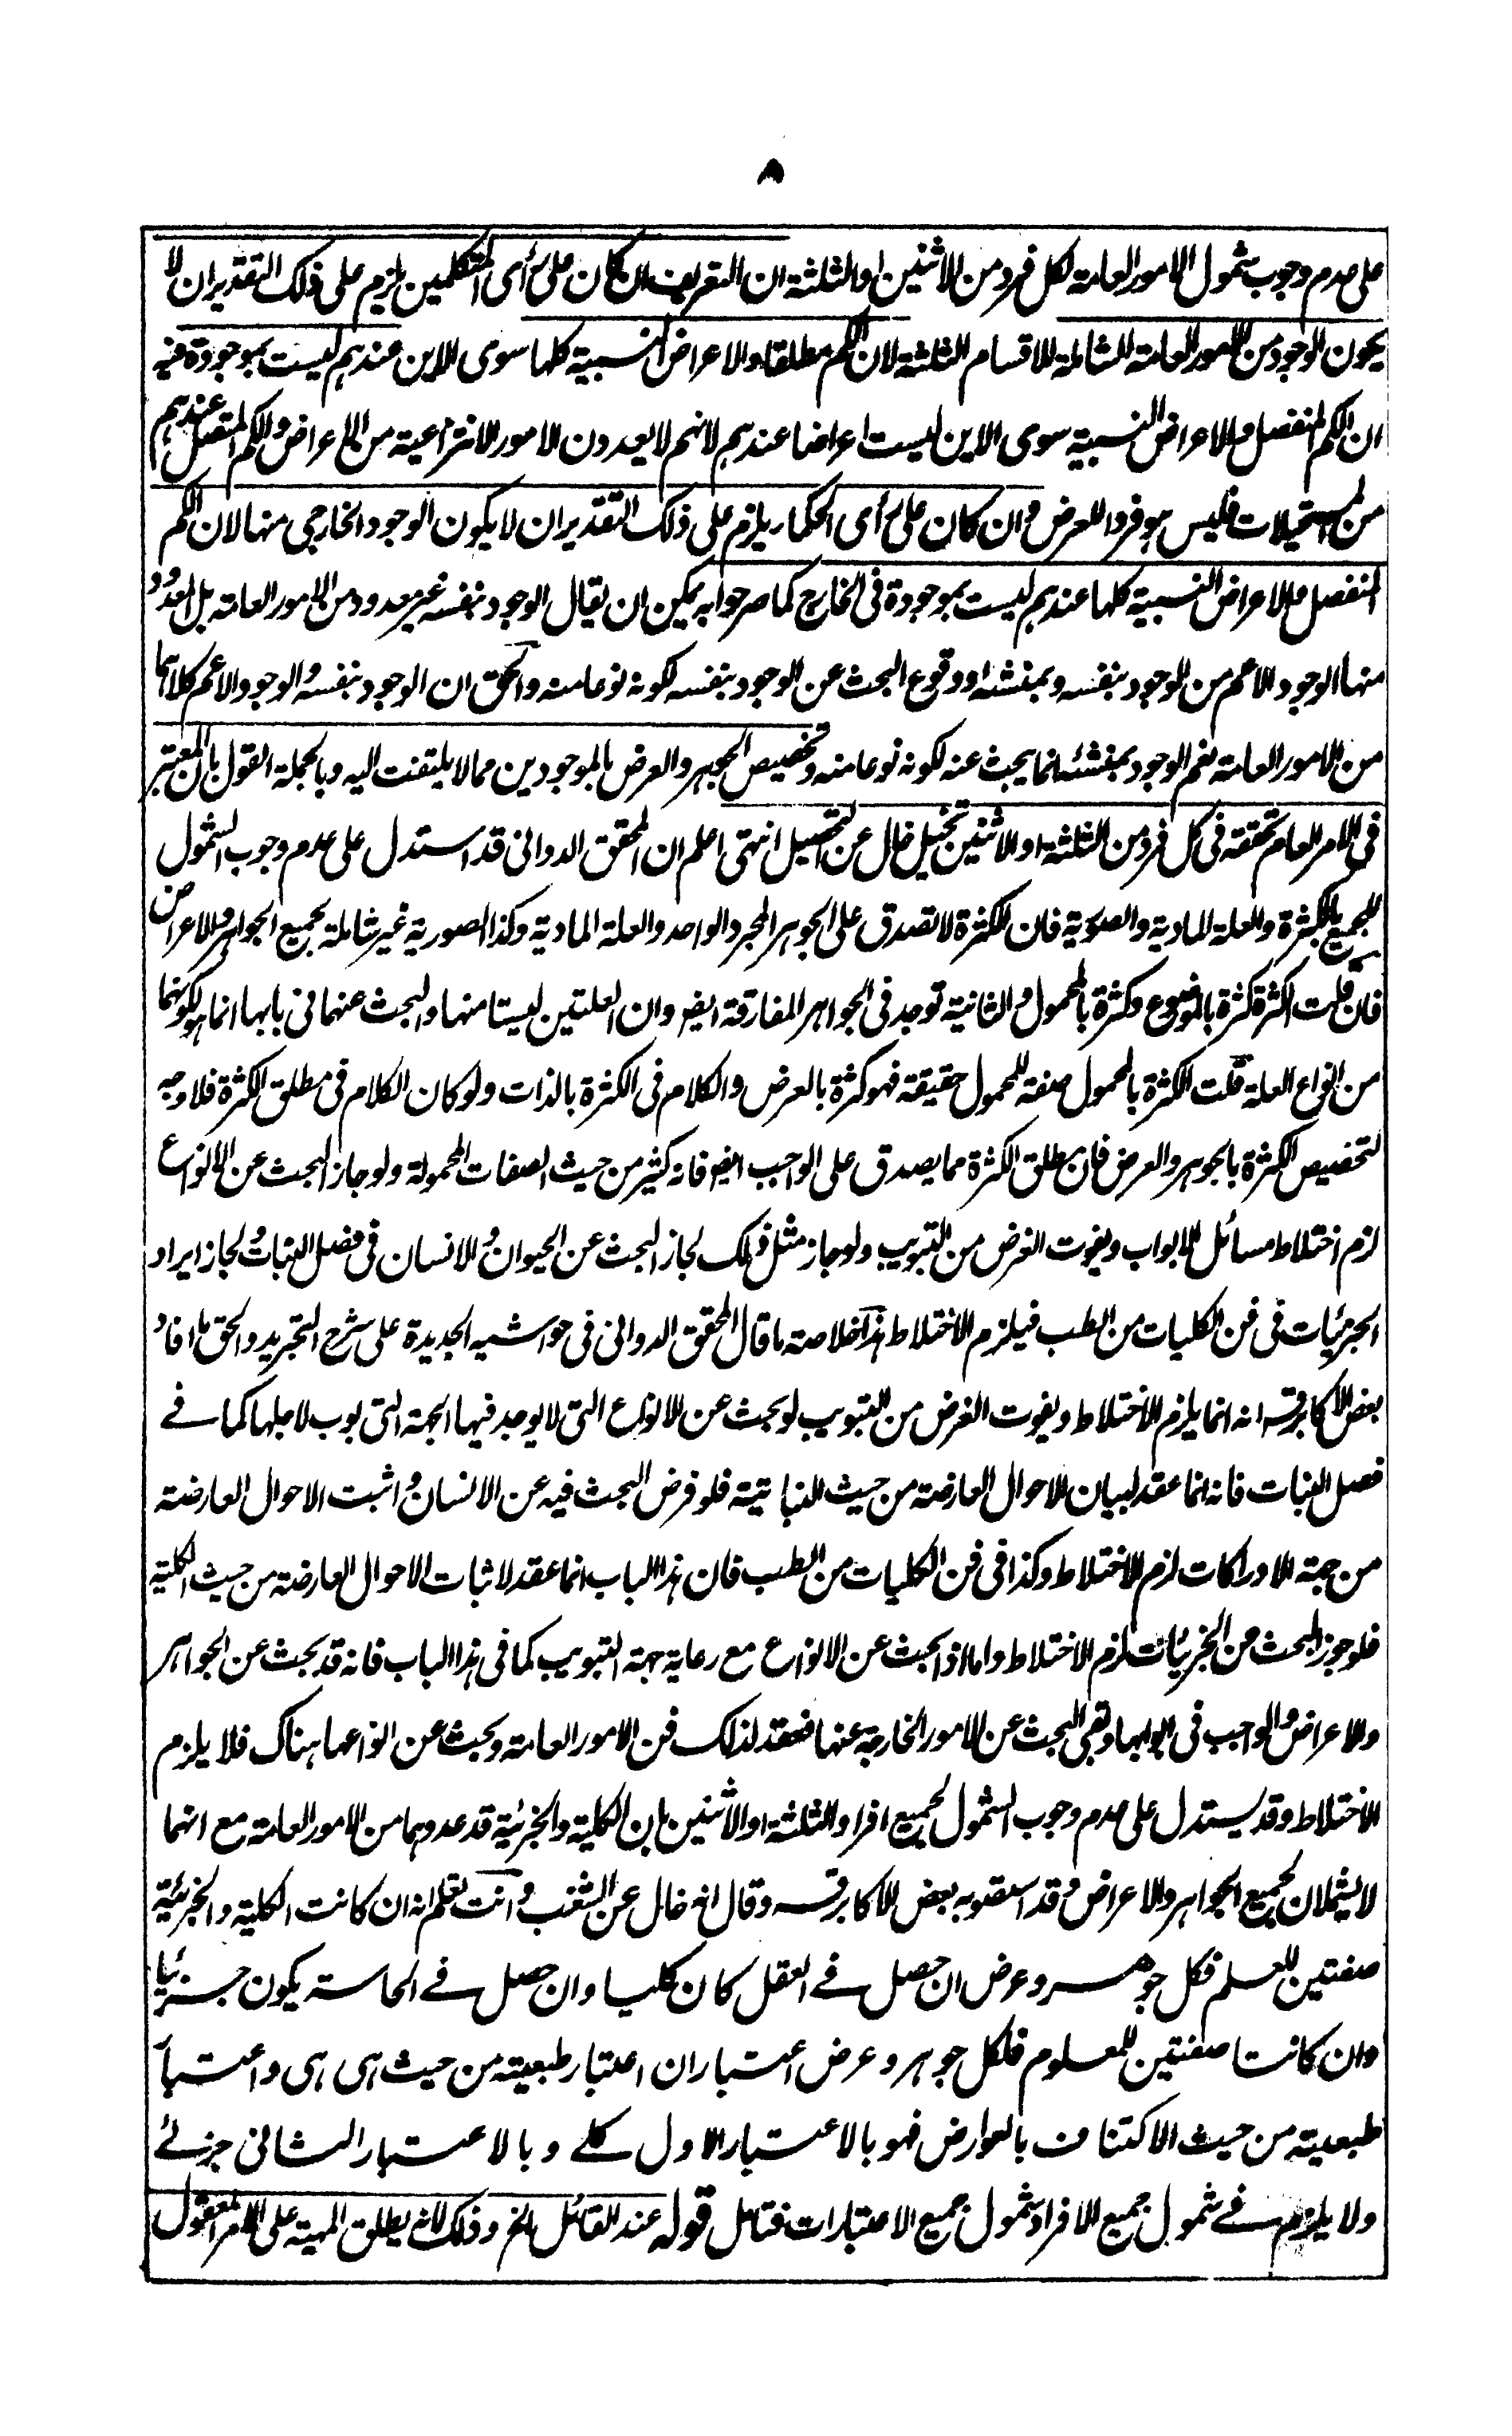 ٨
على عدم وجوب شمول الامور العامة لكل فرد من الاثنين او الثلثة ان التعريف ان كان على رأى المتكلمين يلزم على ذلك التقدير ان لا
يكون الوجود من الامور العامة الشاملة للاقسام الثلثة لان الكم مطلقا والاعراض النسبية كلها سوى الاين عندهم ليست بموجودة فيه
ان الكم المنفصل والاعراض النسبية سوى الاين ليست اعراضا عندهم لانهم لا يعدون الامور الانتزاعية من الاعراض والكم المتصل عندهم
من المستحيلات فليس هو فردا للعرض وان كان على رأى الحكماء يلزم على ذلك التقدير ان لا يكون الوجود الخارجى منها لان الكم
المنفصل والاعراض النسبية كلها عندهم ليست بموجودة فى الخارج كما صرحوا به يمكن ان يقال الوجود بنفسه غير معدود من الامور العامة بل المعدود
منها الوجود الاعم من الوجود بنفسه وبمنشئه او وقوع البحث عن الوجود بنفسه لكونه نوعا منه والحق ان الوجود بنفسه والوجود الاعم كلاهما
من الامور العامة نعم الوجود بمنشئه انما يبحث عنه لكونه نوعا منه وتخصيص الجوهر والعرض بالموجودين مما لا يلتفت اليه وبالجملة القول بان المعتبر
فى الامر العام تحققه فى كل فرد من الثلثة او الاثنين تخئيل خال عن التحصيل انتهى اعلم ان المحقق الدوانى قد استدل على عدم وجوب الشمول
للجميع بالكثرة والعلة المادية والصورية فان الكثرة لا تصدق على الجوهر المجرد الواحد والعلة المادية وكذا الصورية غير شاملة لجميع الجواهر والاعراض
فان قلت الكثرة كثرة بالموضوع وكثرة بالمحمول والثانية توجد فى الجواهر المفارقة ايضا وان العلتين ليستا منها والبحث عنهما فى بابها انما هو لكونهما
من انواع العلة قلت الكثرة بالمحمول صفة للمحمول حقيقة فهو كثرة بالعرض والكلام فى الكثرة بالذات ولو كان الكلام فى مطلق الكثرة فلا وجه
لتخصيص الكثرة بالجوهر والعرض فان مطلق الكثرة مما يصدق على الواجب ايضا فانه كثير من حيث الصفات المحمولة ولو جاز البحث عن الانواع
لزم اختلاط مسائل الابواب ويفوت الغرض من التبويب ولو جاز مثل ذلك لجاز البحث عن الحيوان والانسان فى فصل النبات ولجاز ايراد
الجزئيات فى فن الكليات من الطب فيلزم الاختلاط هذا خلاصة ما قال المحقق الدوانى فى حواشيه الجديدة على شرح التجريد والحق ما افاد
بعض الاكابر قسه انه انما يلزم الاختلاط ويفوت الغرض من التبويب لو بحث عن الانواع التى لا يوجد فيها الجهة التى بوب لاجلها كما فے
فصل النبات فانه انما عقد لبيان الاحوال العارضة من حيث النباتية فلو فرض البحث فيه عن الانسان واثبت الاحوال العارضة
من جهة الادراكات لزم الاختلاط وكذا فى فن الكليات من الطب فان هذا الباب انما عقد لاثبات الاحوال العارضة من حيث الكلية
فلو جوز البحث من الجزئيات لزم الاختلاط واما اذا بحث عن الانواع مع رعاية جهة التبويب كما فى هذا الباب فانه قد بحث عن الجواهر
والاعراض والواجب فى ابوابها وبقى البحث عن الامور الخارجة عنها فعقد لذلك فن الامور العامة وبحث عن انواعها هناك فلا يلزم
الاختلاط وقد يستدل على عدم وجوب الشمول لجميع افراد الثلثة او الاثنين بان الكلية والجزئية قد عدوهما من الامور العامة مع انهما
لا يشملان لجميع الجواهر والاعراض وقد استصوبه بعض الاكابر قسه وقال انه خال عن الشغب وانت تعلم انه ان كانت الكلية والجزئية
صفتين للعلم فكل جوهر وعرض ان حصل فے العقل كان كليا وان حصل فے الحاسة يكون جزئيا
وان كانتا صفتين للمعلوم فلكل جوهر وعرض اعتباران اعتبار طبعيته من حيث هى هى واعتبار
طبعيته من حيث الاكتناف بالعوارض فهو بالاعتبار الاول كلے وبالاعتبار الثانى جزئے
ولا يلزم فے شمول جميع الافراد شمول جميع الاعتبارات فتامل قوله عند القائل الخ وذلك لانه يطلق المهية على الامر المعقول